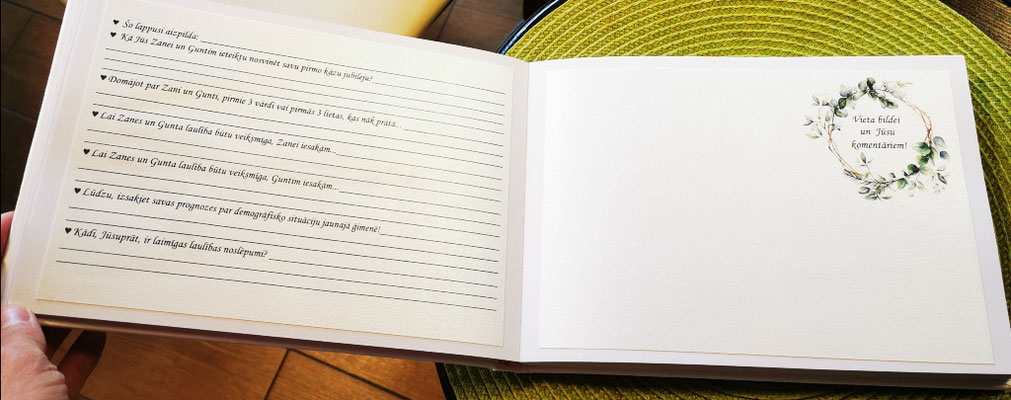 ♥ Šo lappusi aizpilda:
♥ Kā Jūs Zanei un Guntim ieteiktu nosvinēt savu pirmo kāzu jubileju?
♥ Domājot par Zani un Gunti, pirmie 3 vārdi vai pirmās 3 lietas, kas nāk prātā...
♥ Lai Zanes un Gunta laulība būtu veiksmīga, Zanei iesakām...
♥ Lai Zanes un Gunta laulība būtu veiksmīga, Guntim iesakām...
♥ Lūdzu, izsakiet savas prognozes par demogrāfisko situāciju jaunajā ģimenē!
♥ Kādi, Jūsuprāt, ir laimīgas laulības noslēpumi?
Vieta bildei
un Jūsu
komentāriem!